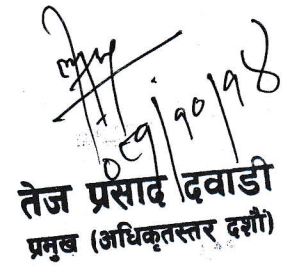 ०८१/१०/१४
तेज प्रसाद दवाडी
प्रमुख (अधिकृतस्तर दशौं)